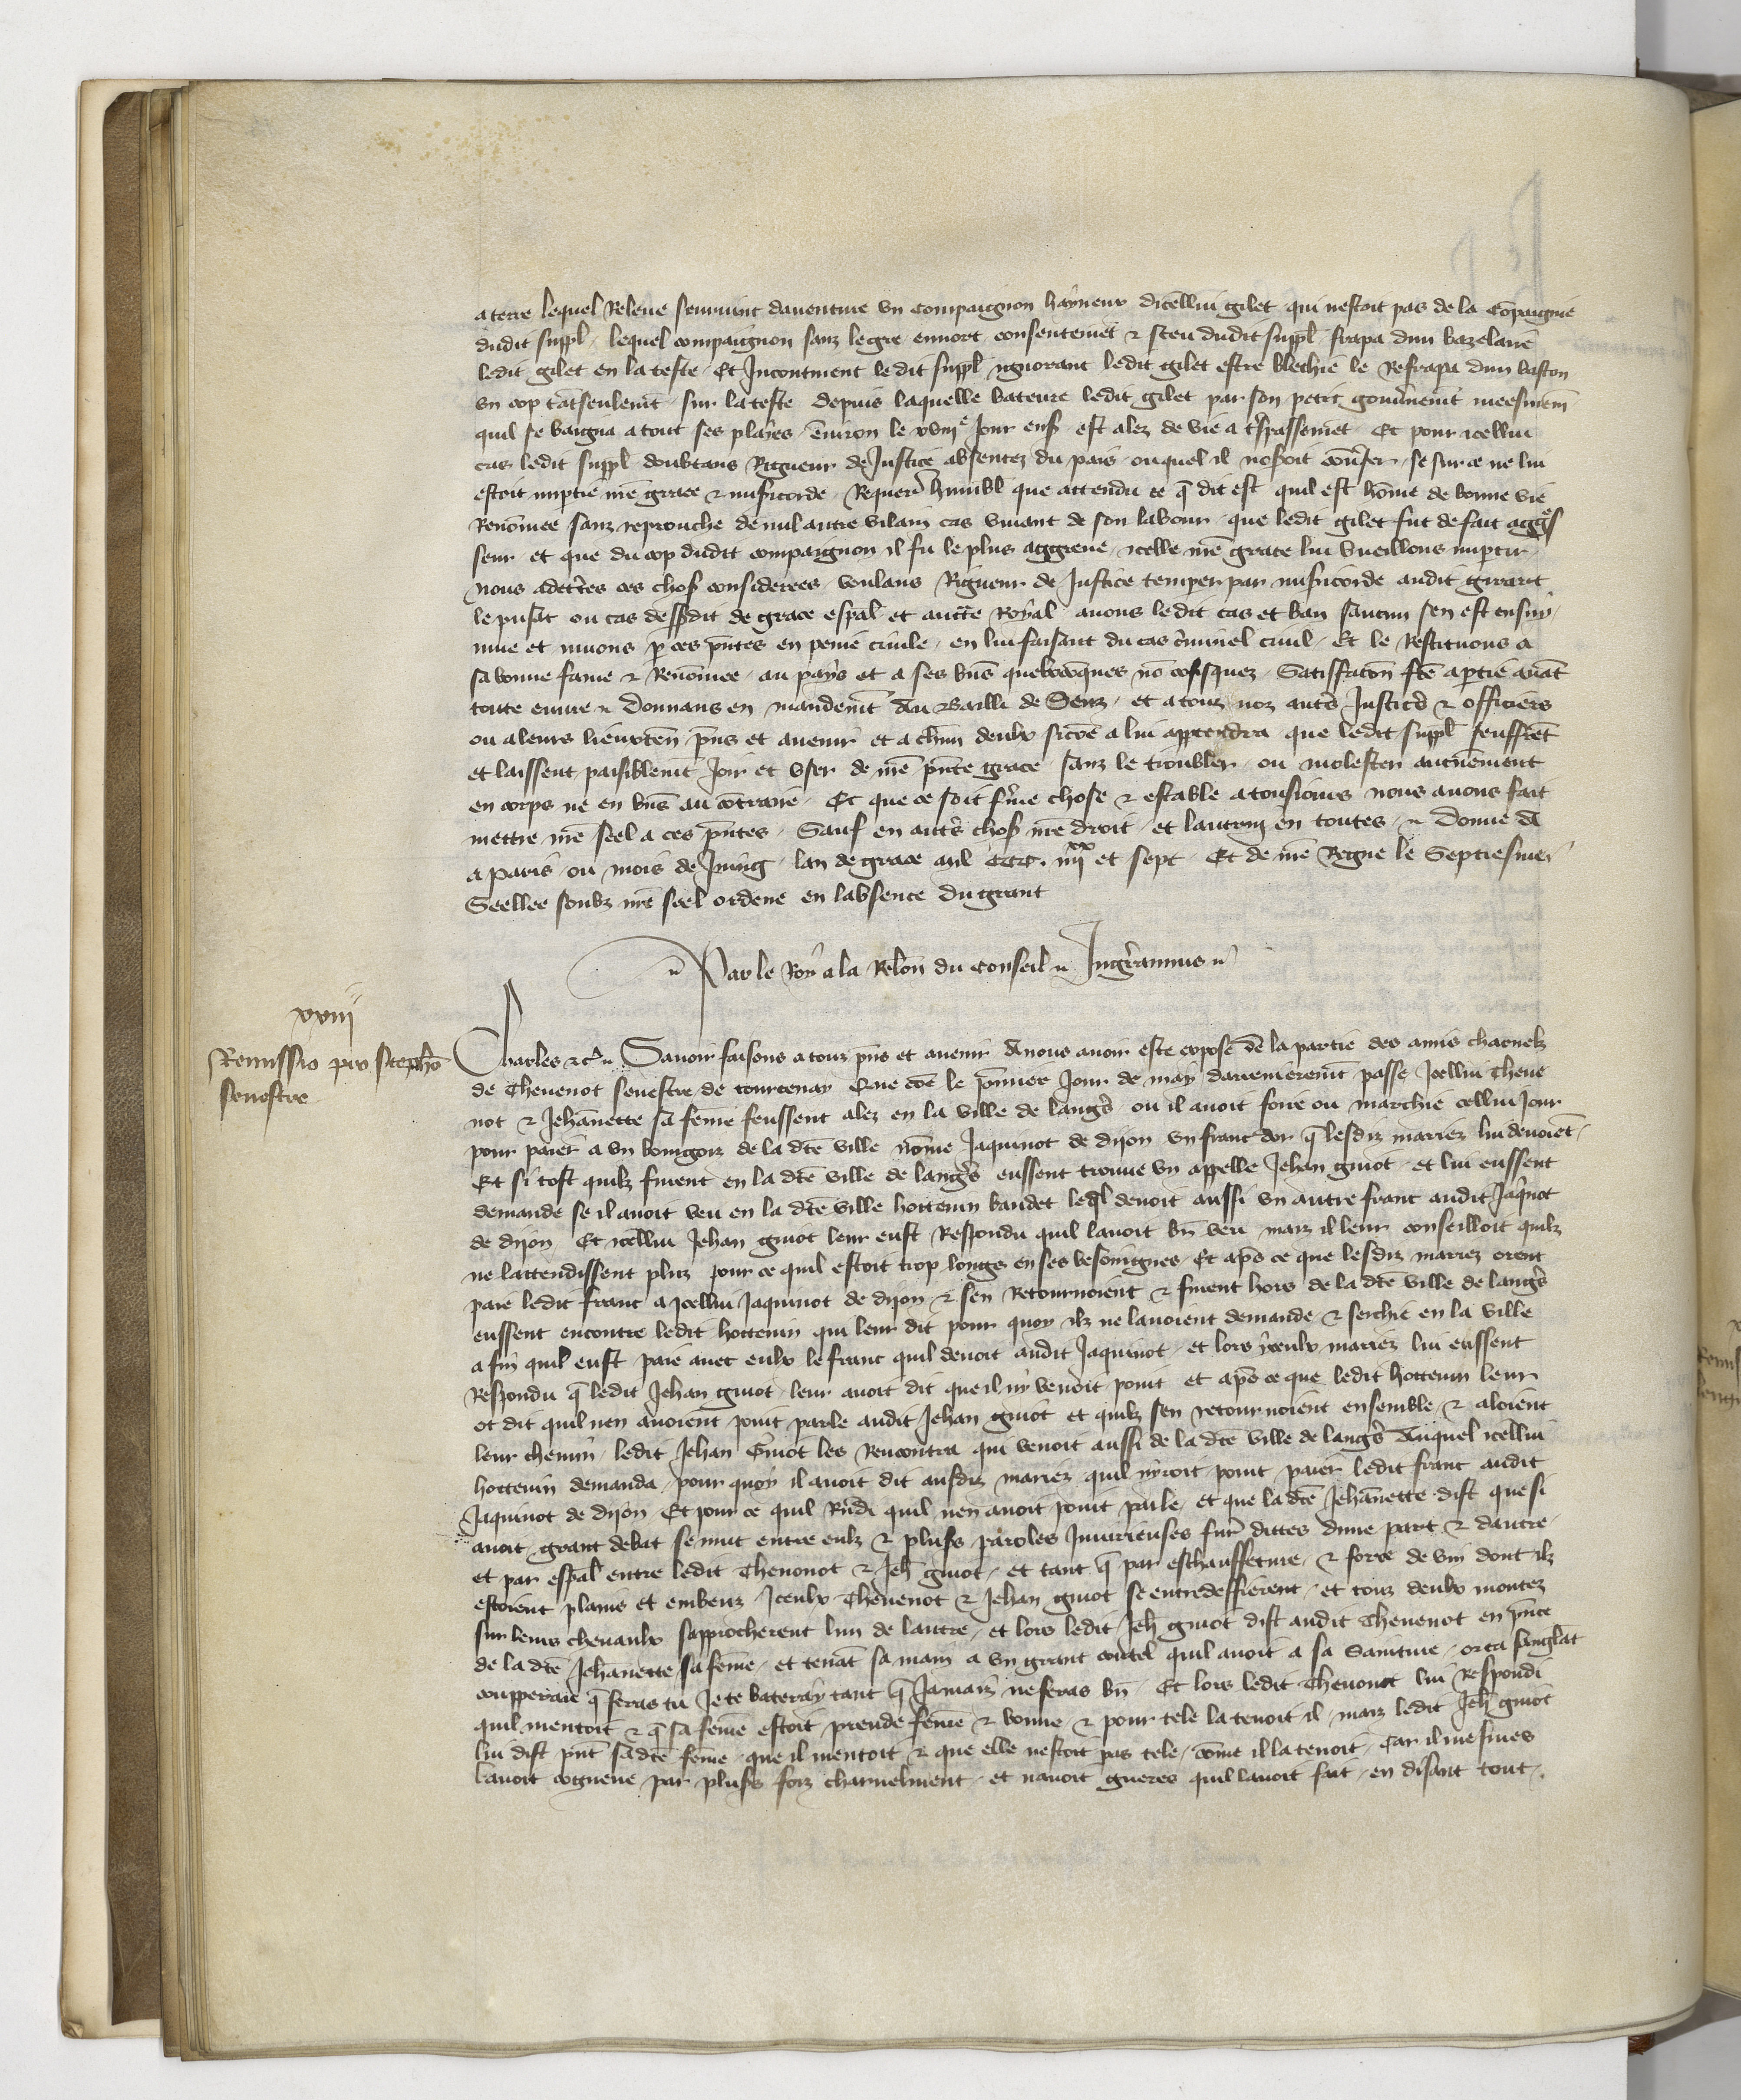 a terre lequel Releve seurvint daventure un compaignon hayneux dicellui gilet qui nestoit pas de la cōpaignie
dudit suppl lequel compaignon sanz le gre enuort consentemēt & sceu dudit suppl frapa dun bazelaire
ledit gilet en la teste Et Incontinent ledit suppl ignorant ledit gilet estre blechie le Refrapa dun baston
un cop tātseulemt sur la teste depuis laquelle bateure ledit gilet par son petit gouvnemt meesmem
quil se baigna a tout ses playes environ le xviije Jour ens est alez de vie a trespassemēt Et pour icellui
cas ledit suppl doubtans Rigueur de Justice absentez du pais ouquel il noseoit conuser se sur ce ne lui
estoit imptie nre grace & misericorde Requer humbl que attendu ce q̄ dit est quil est hōme de bonne vie
Renōmee sanz reprouche de nul autre vilain cas vivant de son labour que ledit gilet fut de fait aggres
seur et que du cop dudit compaignon il fu le plus aggreve icelle nre grace lui vueillons imptir
nous adcertes ces chos considerees voulans Rigueur de Justice temper par misericorde audit girart
le pusat ou cas dessdit de grace espal et auctte Royal avons ledit cas et ban saucun sen est ensuy
mue et muons p ces pntes en peine civile en lui faisant du cas criminel civil Et le Restituons a
sa bonne fame & Renōmee au pays et a ses bns quelxconques nō cōfisquez Satisfacion fte a ptie avāt
toute euvre Donnans en mandemt Au Bailli de Senz et a touz noz autrs Justicrs & officiers
ou a leurs lieuxten pns et avenir et a chun deulx sicōe a lui apptendra que ledit suppl seuffrēt
et laissent paisiblemt Joir et user de nre pnte grace sanz le troubler ou molester aucunement
en corps ne en bns au cōtraire Et que ce soit ferme chose & estable a tousiours nous avons fait
mettre nre seel a ces pntes Sauf en autrs chos nre droit et lautruy en toutes Donne
a Paris ou mois de Juing lan de grace mil CCC. iiijxx et sept Et de nre Regne le Septiesme
Seellee soubz nre seel ordene en labsence du grant
Par le Roy a la Relon du Conseil Ingrannus
xviij
Remissio pro Stepho
senestre
Charles &c Savoir faisons a touz pns et avenir A nous avoir este expose de la partie des amis charnelz
de Thevenot senestre de courtenay Que cōe le pmier Jour de may darreineremt passe Icellui Theve
not & Jehānette sa feme feussent alez en la ville de langrs ou il avoit foire ou marchie cellui Jour
pour paier a un bourgois de la dte ville nōme Jaquinot de dijon un franc dor q̄ lesdiz mariez lui devoiēt
Et si tost quilz furent en la dte ville de langrs eussent trouve un appelle Jehan guiot et lui eussent
demande se il avoit veu en la dte ville hottenin baudet leql devoit aussi un autre franc audit Jaqnot
de dijon Et icellui Jehan guiot leur eust Respondu quil lavoit bn veu maiz il leur conseilloit quilz
ne lattendissent pluz pour ce quil estoit trop longs en ses besoingnes Et apres ce que lesdiz mariez orent
paie ledit franc a Icellui Jaquinot de dijon & sen Retournoient & furent hors de la dte ville de langrs
eussent encontre ledit hottenin qui leur dit pour quoy ilz ne lavoient demande & serchie en la ville
a fin quil eust paie avec eulx le franc quil devoit audit Jaquinot et lors yceulx mariez lui eussent
Respondu q̄ ledit Jehan guiot leur avoit dit que il ny vendroit point et apres ce que ledit hottenin leur
ot dit quil nen avoient point parle audit Jehan guiot et quilz sen retournoient ensemble & aloient
leur chemin ledit Jehan Guiot les Rencontra qui venoit aussi de la dte ville de langrs Auquel icellui
hottenin demanda pour quoy il avoit dit ausdiz mariez quil nyroit point paier ledit franc audit
Jaquinot de dijon Et pour ce quil Rndi quil nen avoit point parle et que la dte Jehānette dist que si
avoit grant debat se mut entre eulz & plusrs paroles Injurieuses fur dittes dune part & dautre
et par espal entre ledit Thevenot & Jeh guiot et tant q̄ par eschauffeture & force de vin dont ilz
estoient plains et embeuz Iceulx Thevenot & Jehan guiot se entredeffierent et touz deulx montez
sur leurs chevaulx sapprocherent lun de lautre et lors ledit Jeh guiot dist audit Thevenot en pnce
de la dte Jehānette sa feme et tenāt sa main a un grant coutel quil avoit a sa sainture orca sanglāt
coupperaie q̄ feras tu Je te bateray tant q̄ Jamaiz ne feras bn Et lors ledit Thevenot lui Respondi
quil mentoit & q̄ sa femē estoit preude feme & bonne & pour tele la tenoit il maiz ledit Jeh guiot
lui dist pnt sa dte feme que il mentoit & que elle nestoit pas tele cōme il la tenoit Car il mesmes
lavoit cogneue par plusrs foiz charnelment et navoit gueres quil lavoit fait en disant tout